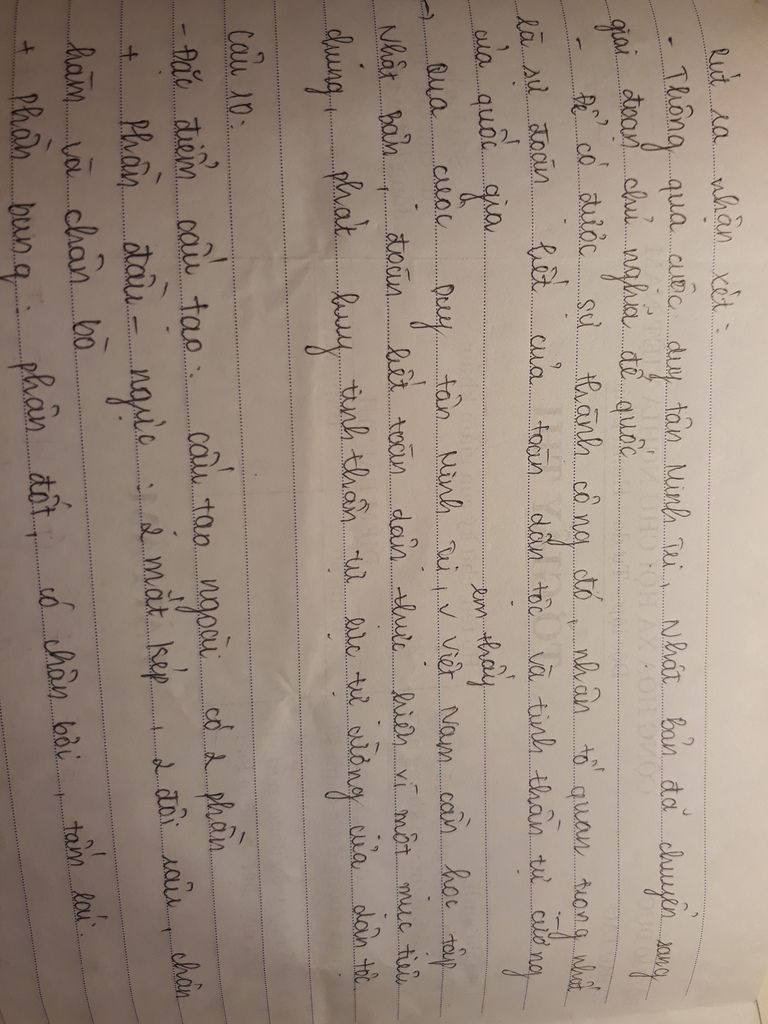 rút ra nhận xét:
- Thông qua cuộc duy tân Minh Trị, Nhật bản đã chuyển sang
giai đoạn chủ nghĩa đế quốc
- Để có được sự thành công đó, nhân tố quan trọng nhất
là sự đoàn kết của toàn dân tộc và tinh thần tự cường
của quốc gia
em thấy
→ Qua cuộc Duy tân Minh Trị, v Việt Nam cần học tập
Nhật Bản, đoàn kết toàn dân thực hiện vì một mục tiêu
chung, phát huy tinh thần tự lực tự cường của dân tộc.
Câu 10:
- Đặc điểm cấu tạo: cấu tạo ngoài có 2 phần
+ Phần đầu - ngực: 2 mắt kép, 2 đôi râu, chân
hàm và chân bò
+ Phần bụng: phân đốt, có chân bơi, tấm lái.